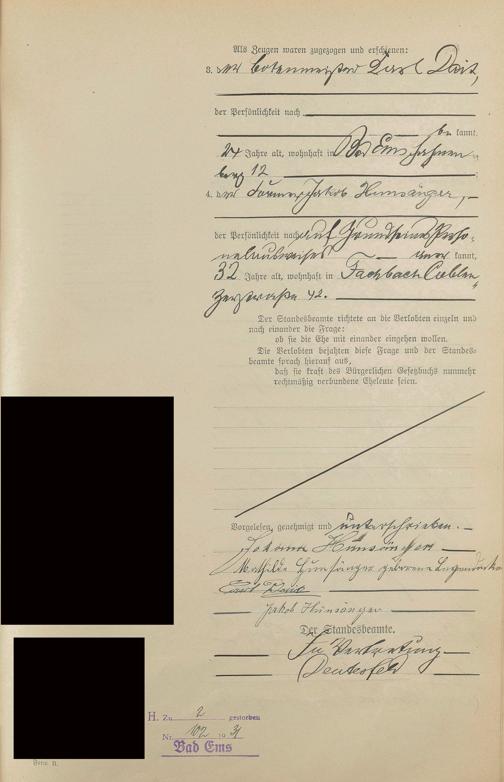 Als Zeugen waren zugezogen und erschienen:
3. der Botenmeister Karl
der Persönlichkeit nach
be kannt,
24 Jahre alt, wohnhaft in Bad Ems, Hahnen-
berg 12
4. der Former Jakob Hunsänger,
der Persönlichkeit nach auf Grund seines Perso-
nalausweises aner kannt,
32 Jahre alt, wohnhaft in Fachbach Coblen-
zerstraße 42.
Der Standesbeamte richtete an die Verlobten einzeln und
nach einander die Frage:
ob sie die Ehe mit einander eingehen wollen.
Die Verlobten bejahten diese Frage und der Standes-
beamte sprach hierauf aus,
daß sie kraft des Bürgerlichen Gesetzbuchs nunmehr
rechtmäßig verbundene Eheleute seien.
Vorgelesen, genehmigt und unterschrieben.
Hunsänger
Mathilde Hunsänger geborene
Karl
Jakob Hunsänger
Der Standesbeamte.
In Vertretung
H. Zu 2 gestorben
Nr. 102 19 31
Bad Ems